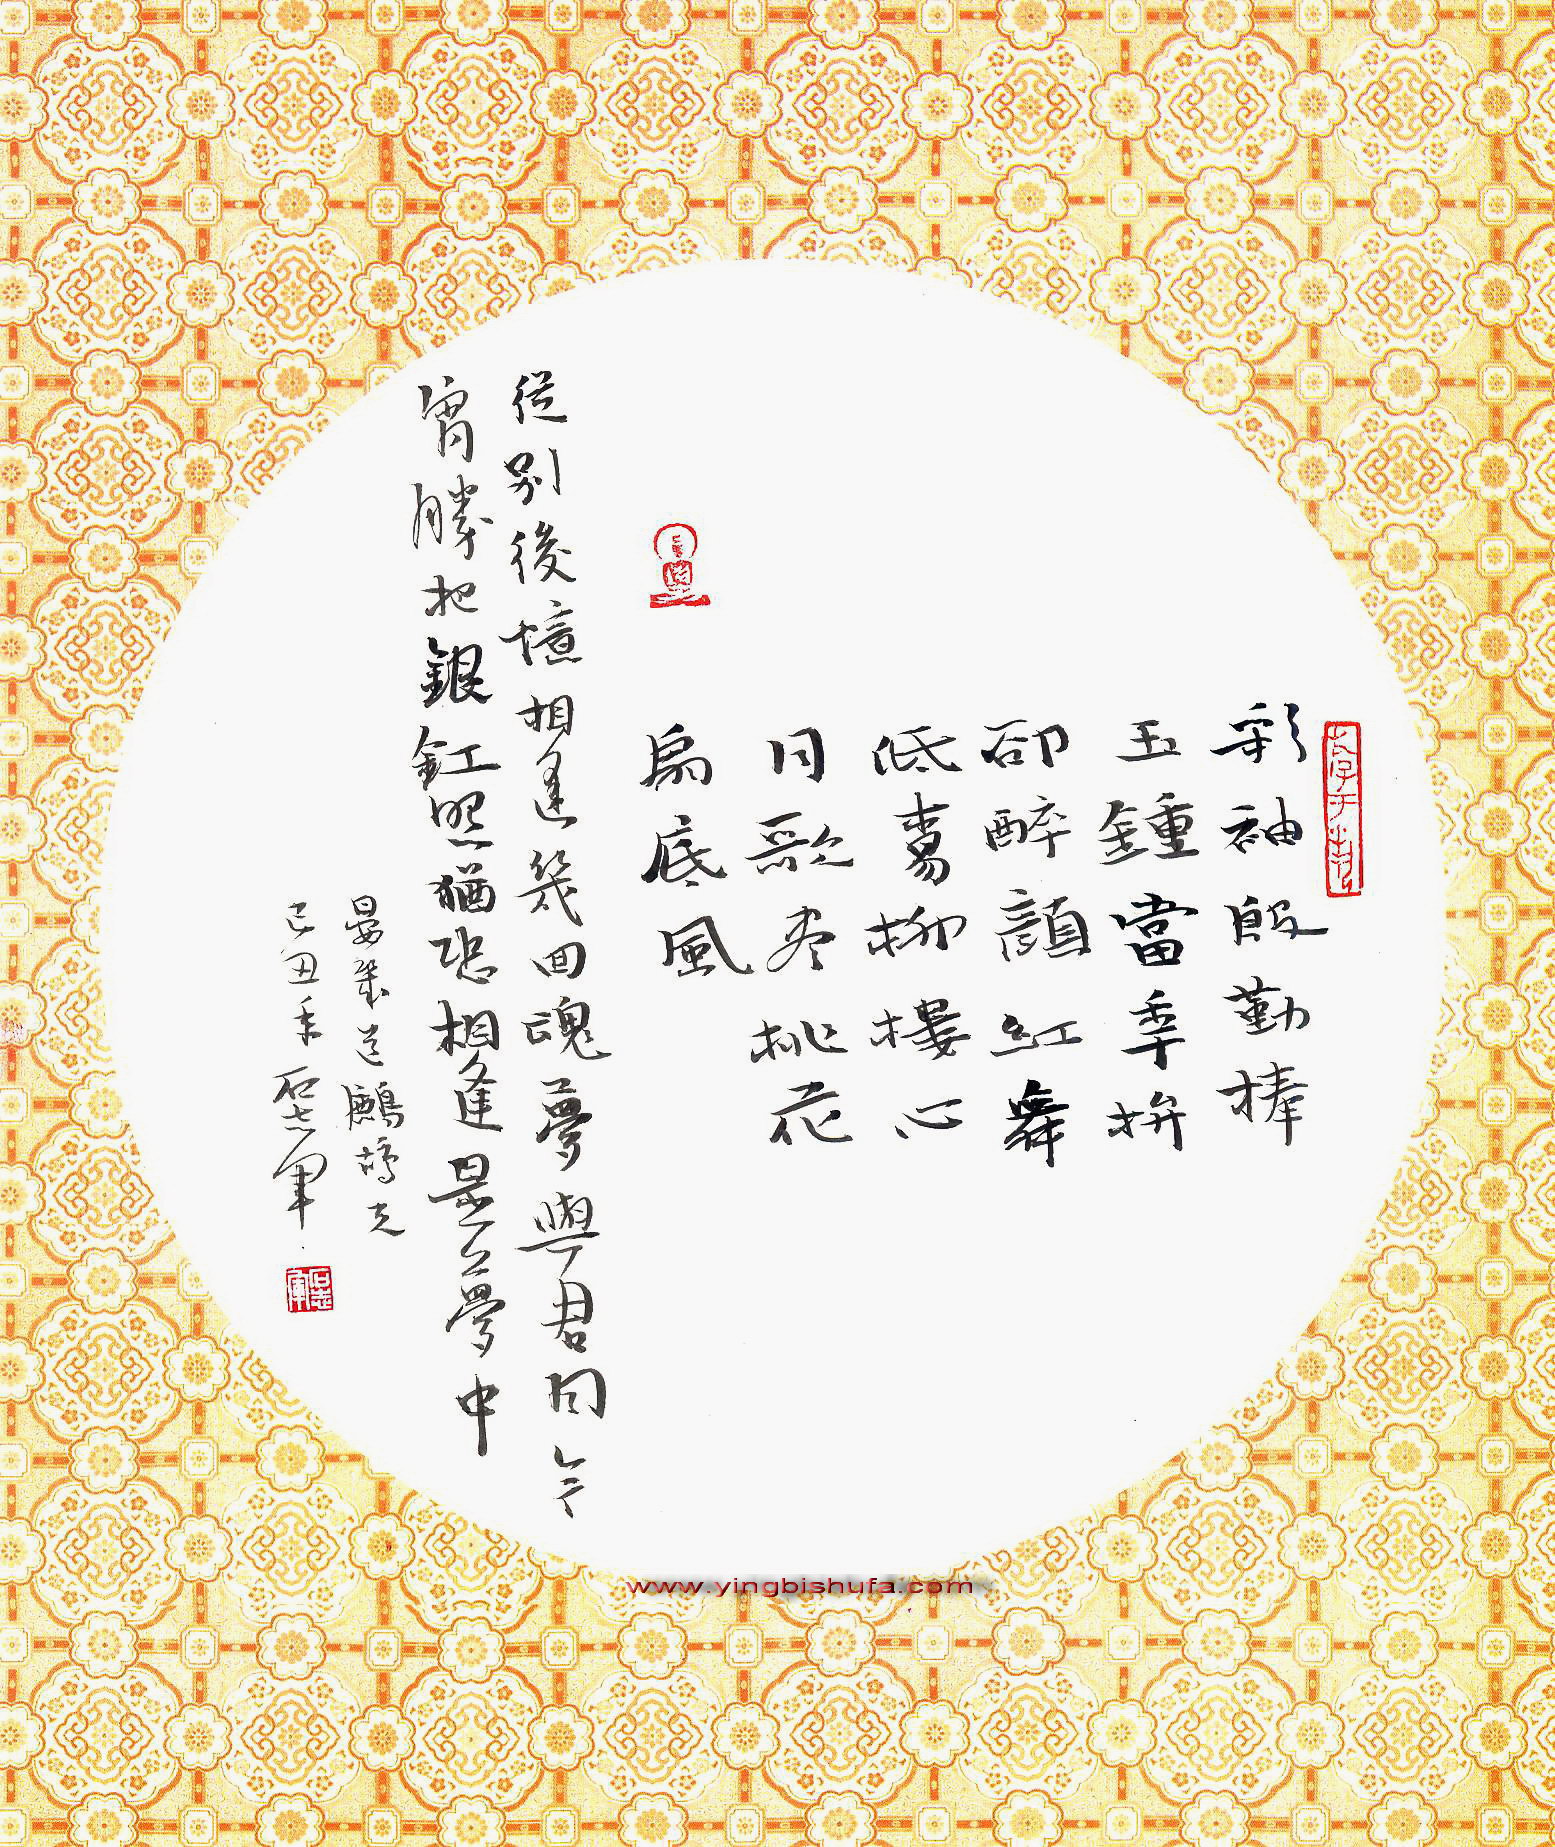 彩袖殷勤捧
玉鍾當年拚
卻醉顏紅舞
低楊柳樓心
月歌尽桃花
扇底風
從別後憶相逢幾回魂夢與君同今
宵勝把銀釭照猶恐相逢是夢中
晏幾道鷓鴣天
己丑年石志軍
石志軍
www.yingbishufa.com